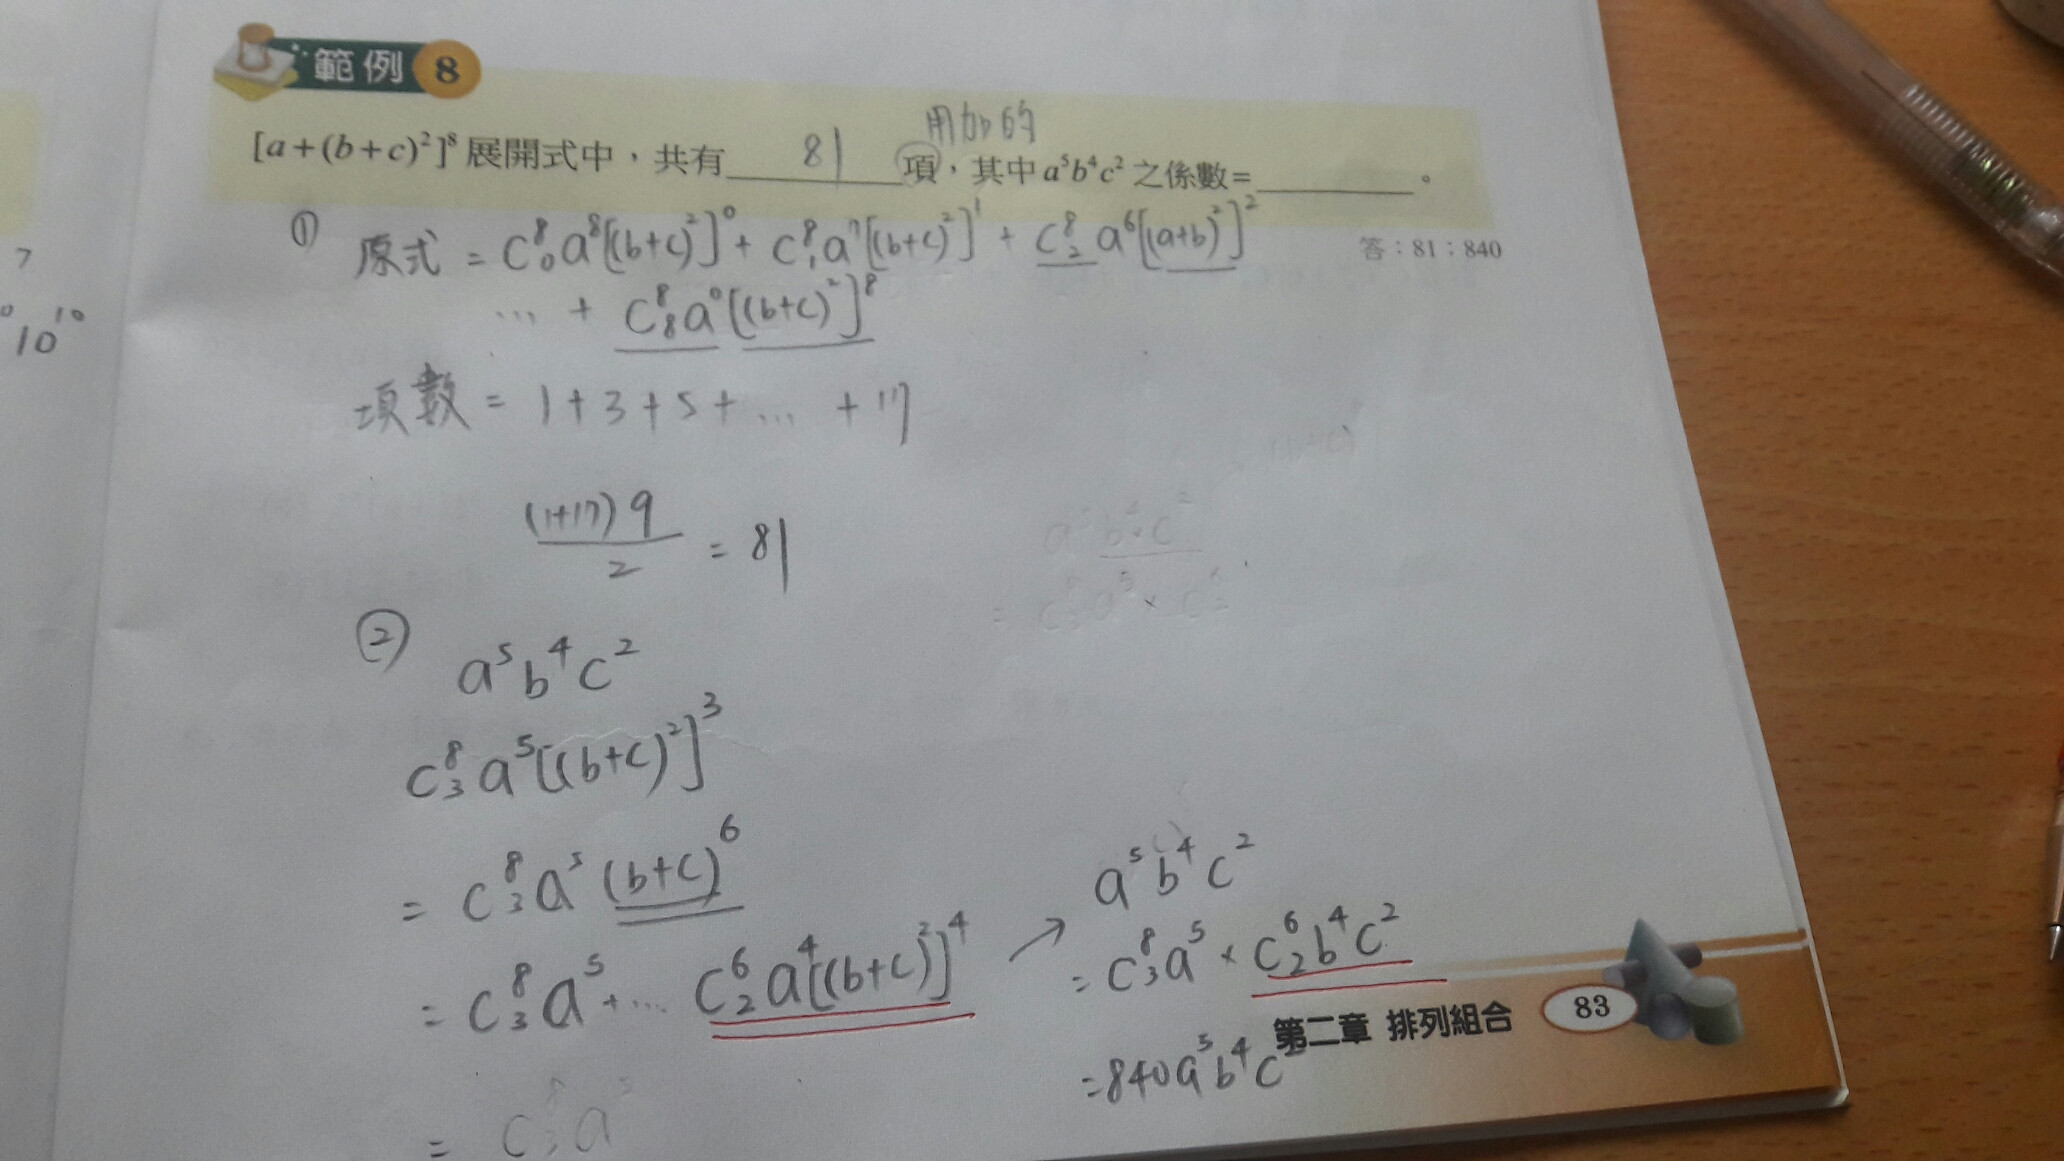 範例 8
用加的
[a+(b+c)²]⁸ 展開式中，共有 81 項，其中 a⁵b⁴c² 之係數=________。
答：81；840
① 原式 = C⁸₀a⁸[(b+c)²]⁰ + C⁸₁a⁷[(b+c)²]¹ + C⁸₂a⁶[(a+b)²]²
... + C⁸₈a⁰[(b+c)²]⁸
項數 = 1+3+5+... +17
(1+17)9/2 = 81
② a⁵b⁴c²
C⁸₃a⁵[(b+c)²]³
= C⁸₃a⁵(b+c)⁶
= C⁸₃a⁵+... C⁶₂a⁴[(b+c)²]⁴
= C⁸₃a⁵
→ a⁵b⁴c²
= C⁸₃a⁵ × C⁶₂b⁴c²
= 840a⁵b⁴c²
第二章 排列組合 83
7
10¹⁰